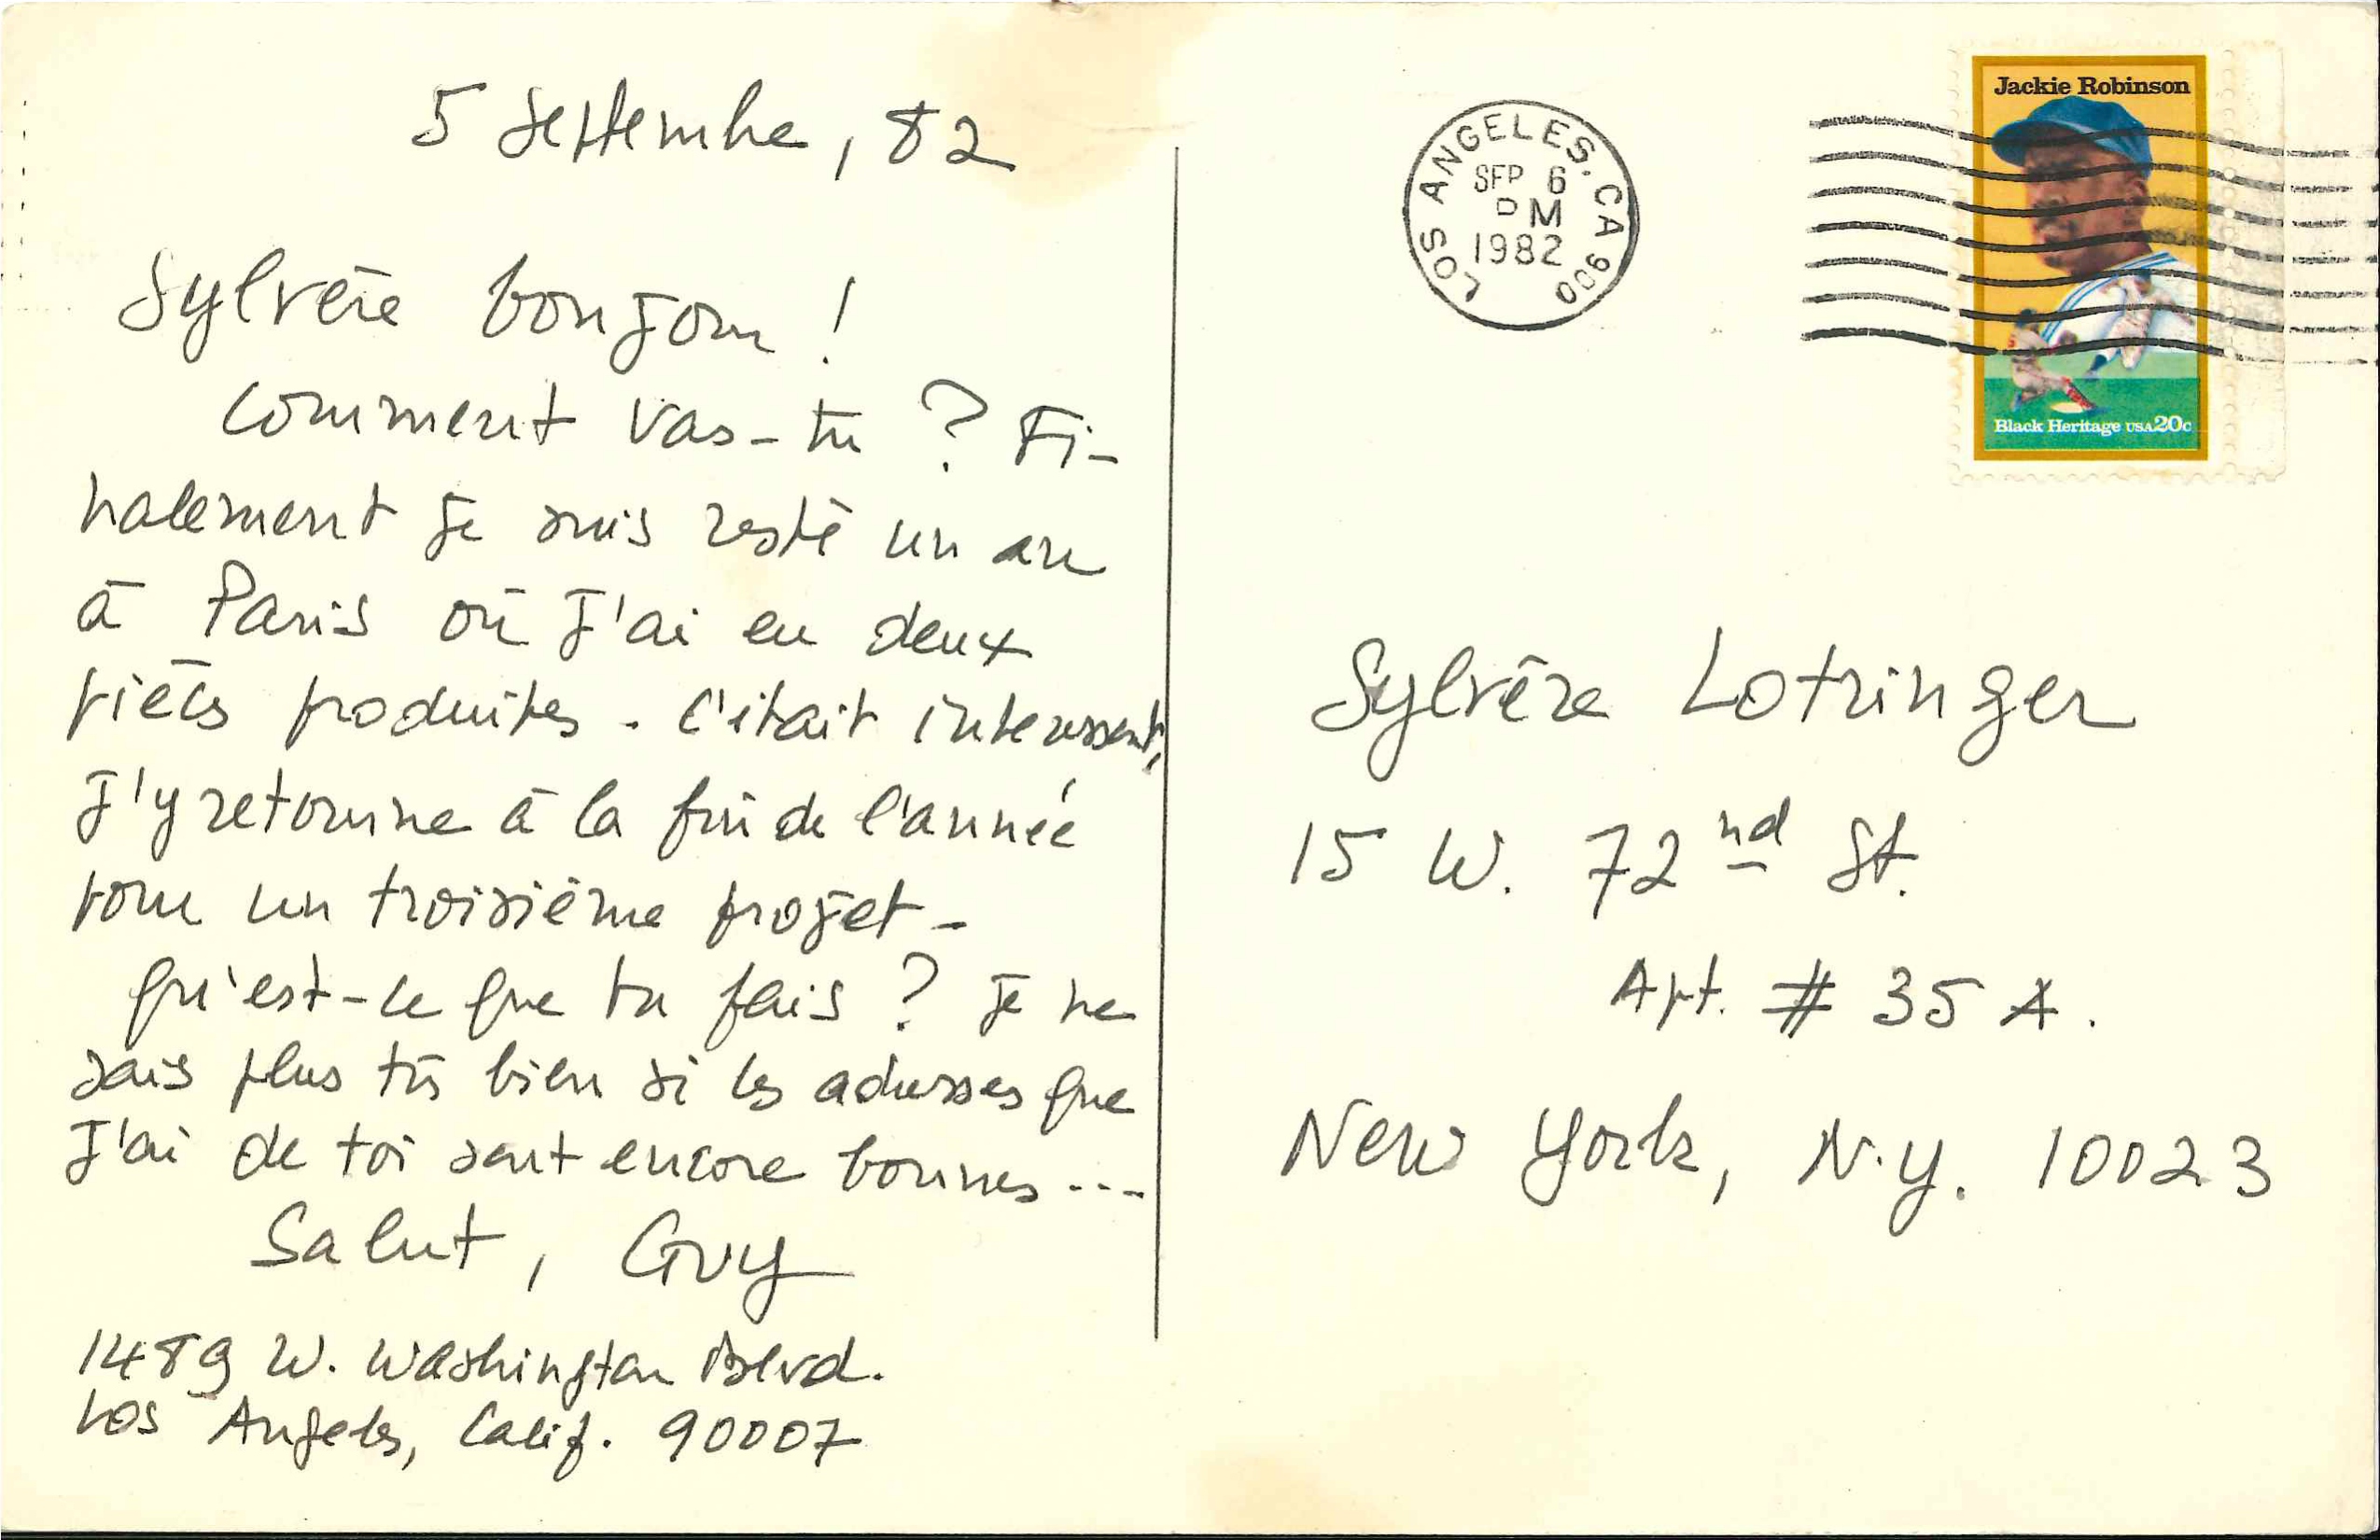 5 Septembre, 82
Sylvère bonjour !
Comment vas-tu ? Fi-
nalement je suis resté un an
à Paris où j'ai eu deux
pièces produites. C'était interessant,
J'y retourne à la fin de l'année
pour un troisième projet -
Qu'est-ce que tu fais ? Je ne
sais plus très bien si les adresses que
j'ai de toi sont encore bonnes ...
Salut, Guy
1489 W. Washington Blvd.
Los Angeles, Calif. 90007
LOS ANGELES, CA 900
SEP 6
PM
1982
Jackie Robinson
Black Heritage USA 20c
Sylvère Lotringer
15 W. 72nd St.
Apt. # 35 A.
New York, N.Y. 10023